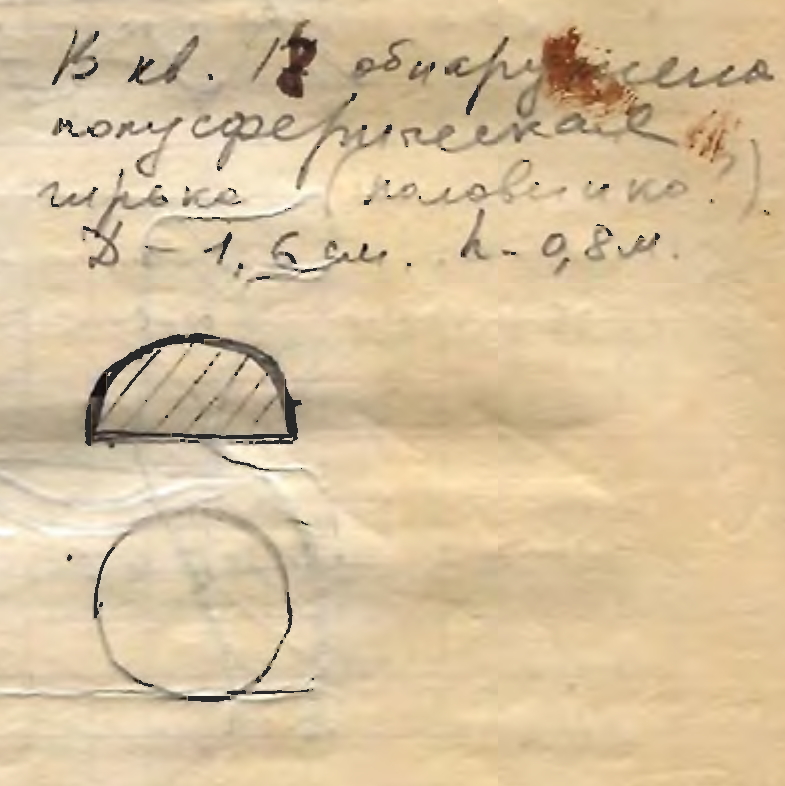 В кв. 12 обнаружена
полусферическая
гирька (половинка?).
D - 1,6 см. h - 0,8 м.